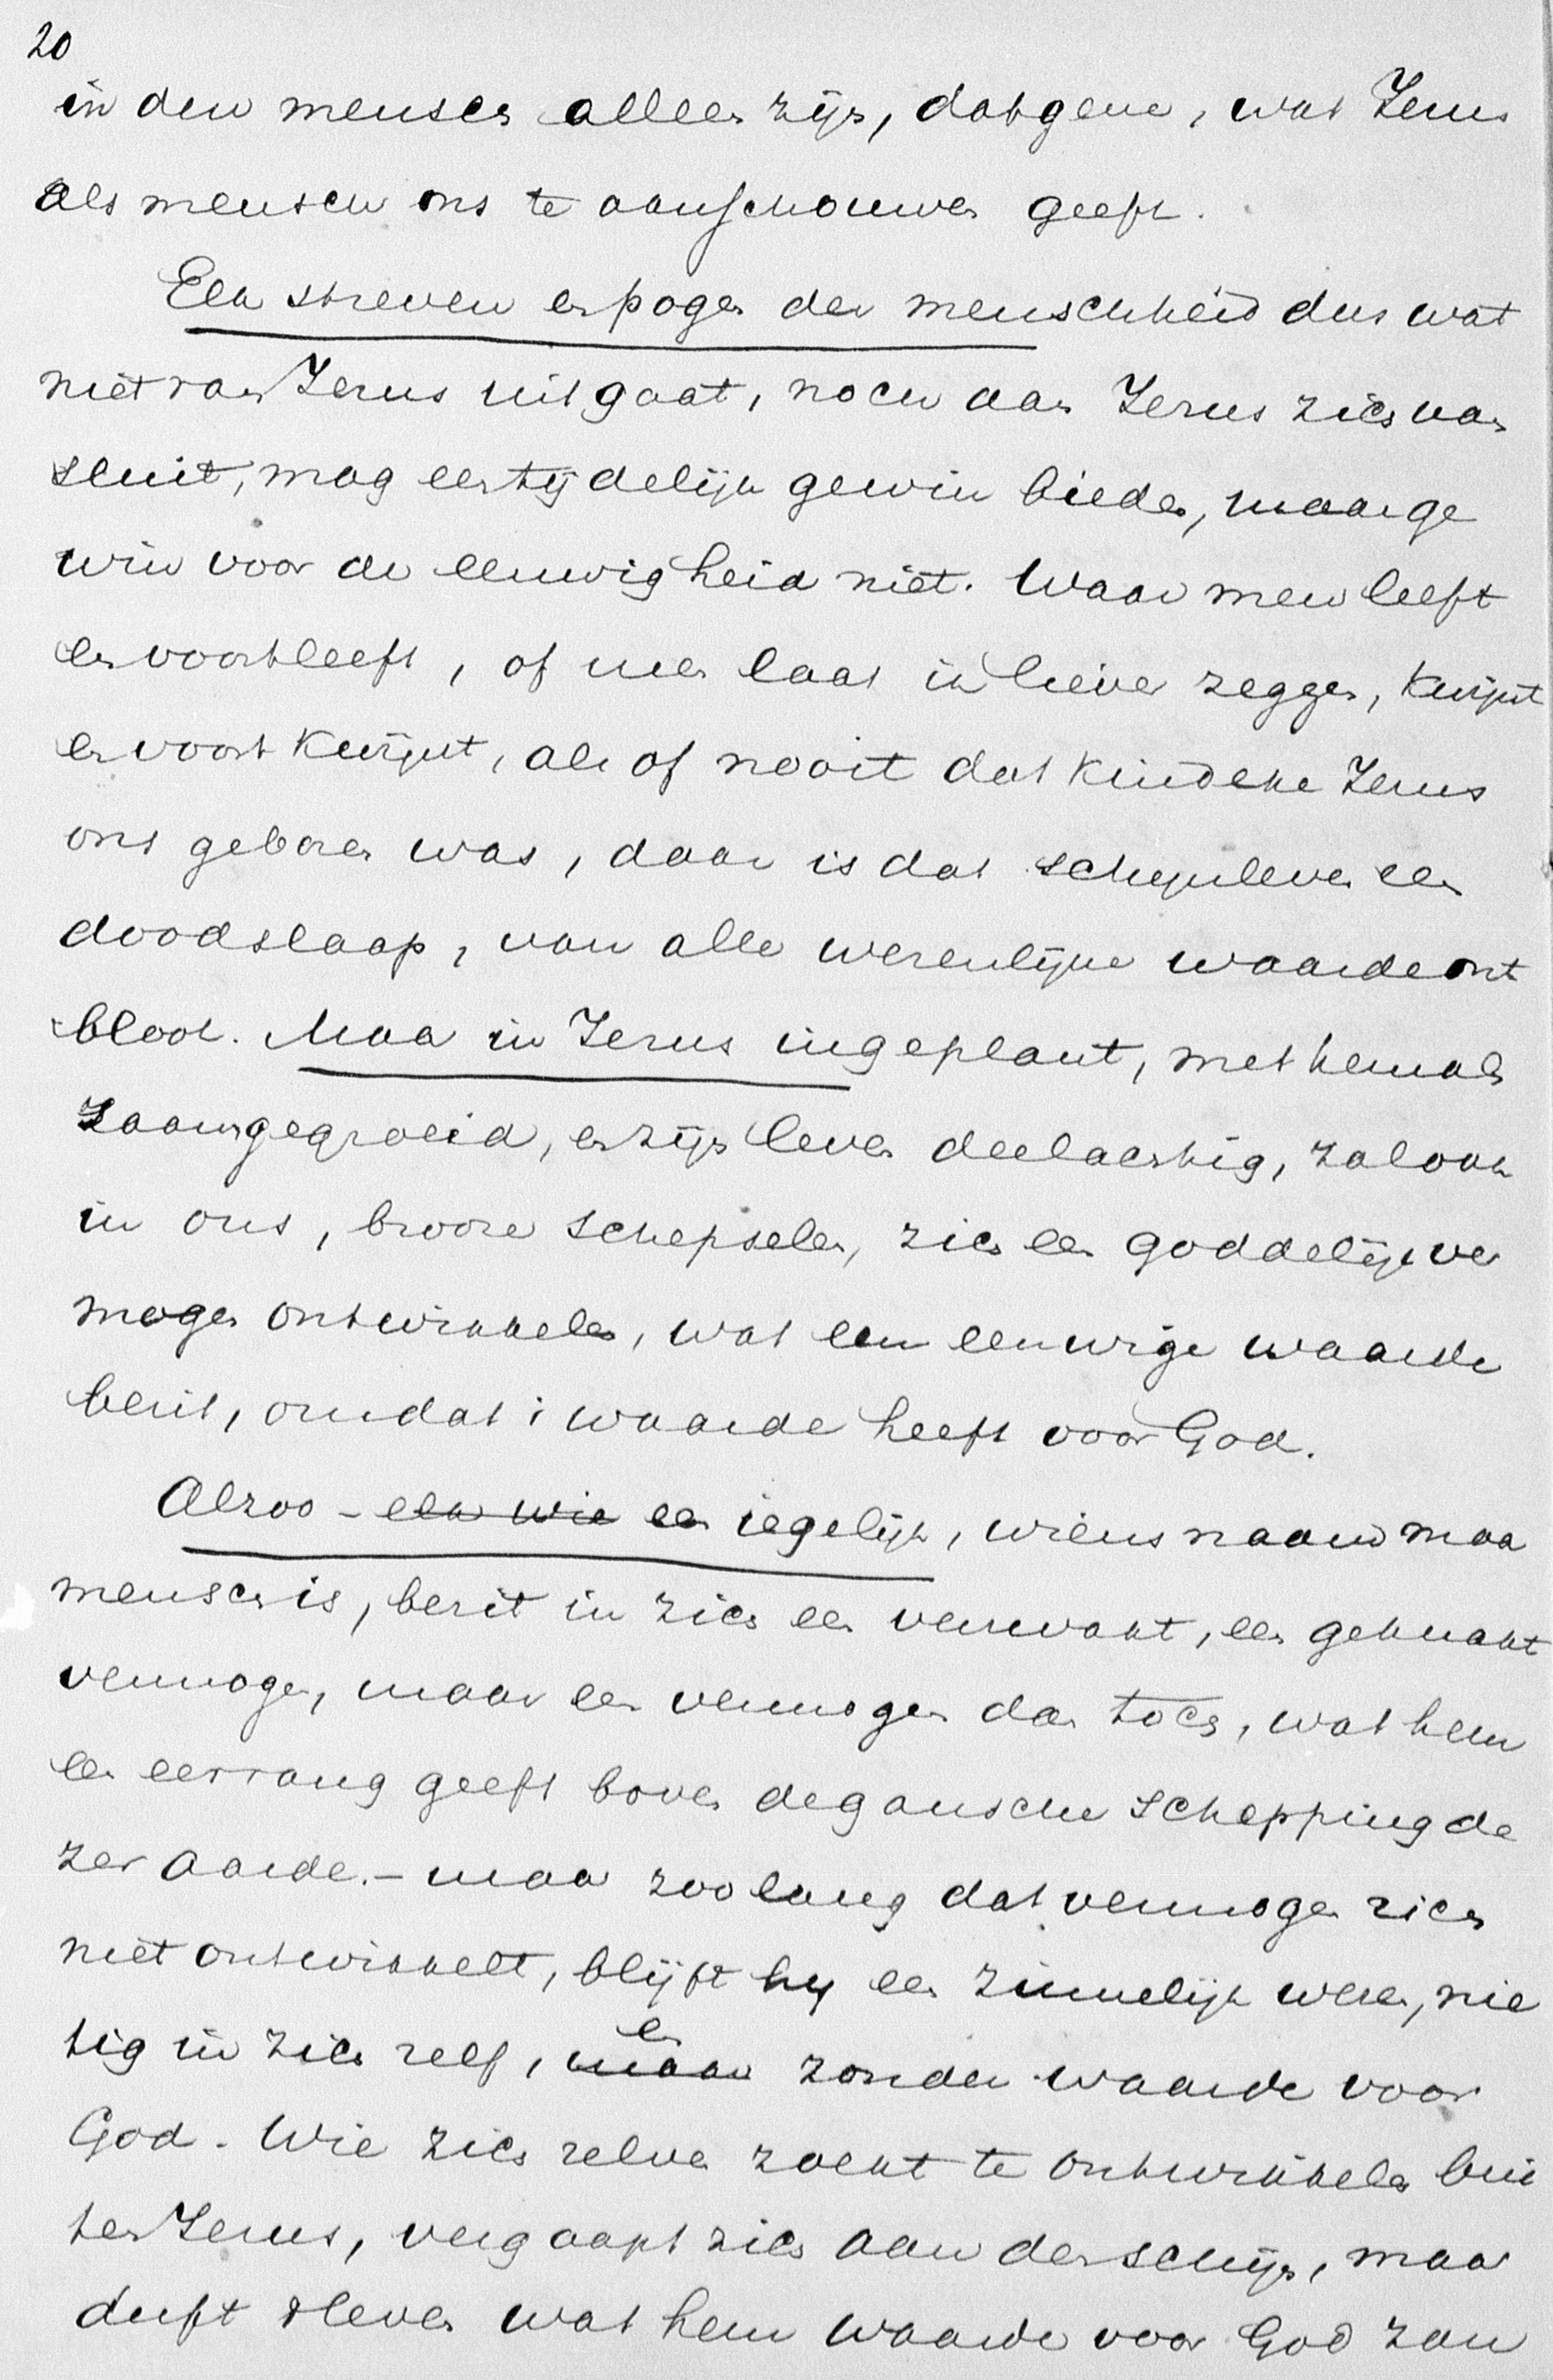 20
in den mensch alleen zijn, datgene, wat Jezus
als mensch ons te aanschouwen geeft.
Elk streven en pogen der menschheid dus wat
niet van Jezus uitgaat, noch aan Jezus zich aan
sluit, mag een tijdelijk gewin bieden, maar ge
win voor de eeuwigheid niet. Waar men leeft
en voortleeft, of neen laat ik liever zeggen, kwijnt
en voort kwijnt, als of nooit dat kindeke Jezus
ons geboren was, daar is dat schijnleven een
doodslaap, van alle wezenlijke waarde ont
bloot. Maar in Jezus ingeplant, met hem als
zaamgegroeid, en zijn leven deelachtig, zal ook
in ons, brooze schepselen, zich een goddelijk ver
mogen ontwikkelen, wat een eeuwige waarde
bezit, omdat 't waarde heeft voor God.
Alzoo - elk wie een iegelijk, wiens naam maar
mensch is, bezit in zich een verzwakt, een geknakt
vermogen, maar een vermogen dan toch, wat hem
een eerrang geeft boven de gansche schepping de
zer aarde. - maar zoolang dat vermogen zich
niet ontwikkelt, blijft hij een zinnelijk wezen, nie
tig in zich zelf, maar en zonder waarde voor
God. Wie zich zelven zoekt te ontwikkelen bui
ten Jezus, vergaapt zich aan den schijn, maar
derft 't leven wat hem waarde voor God zou